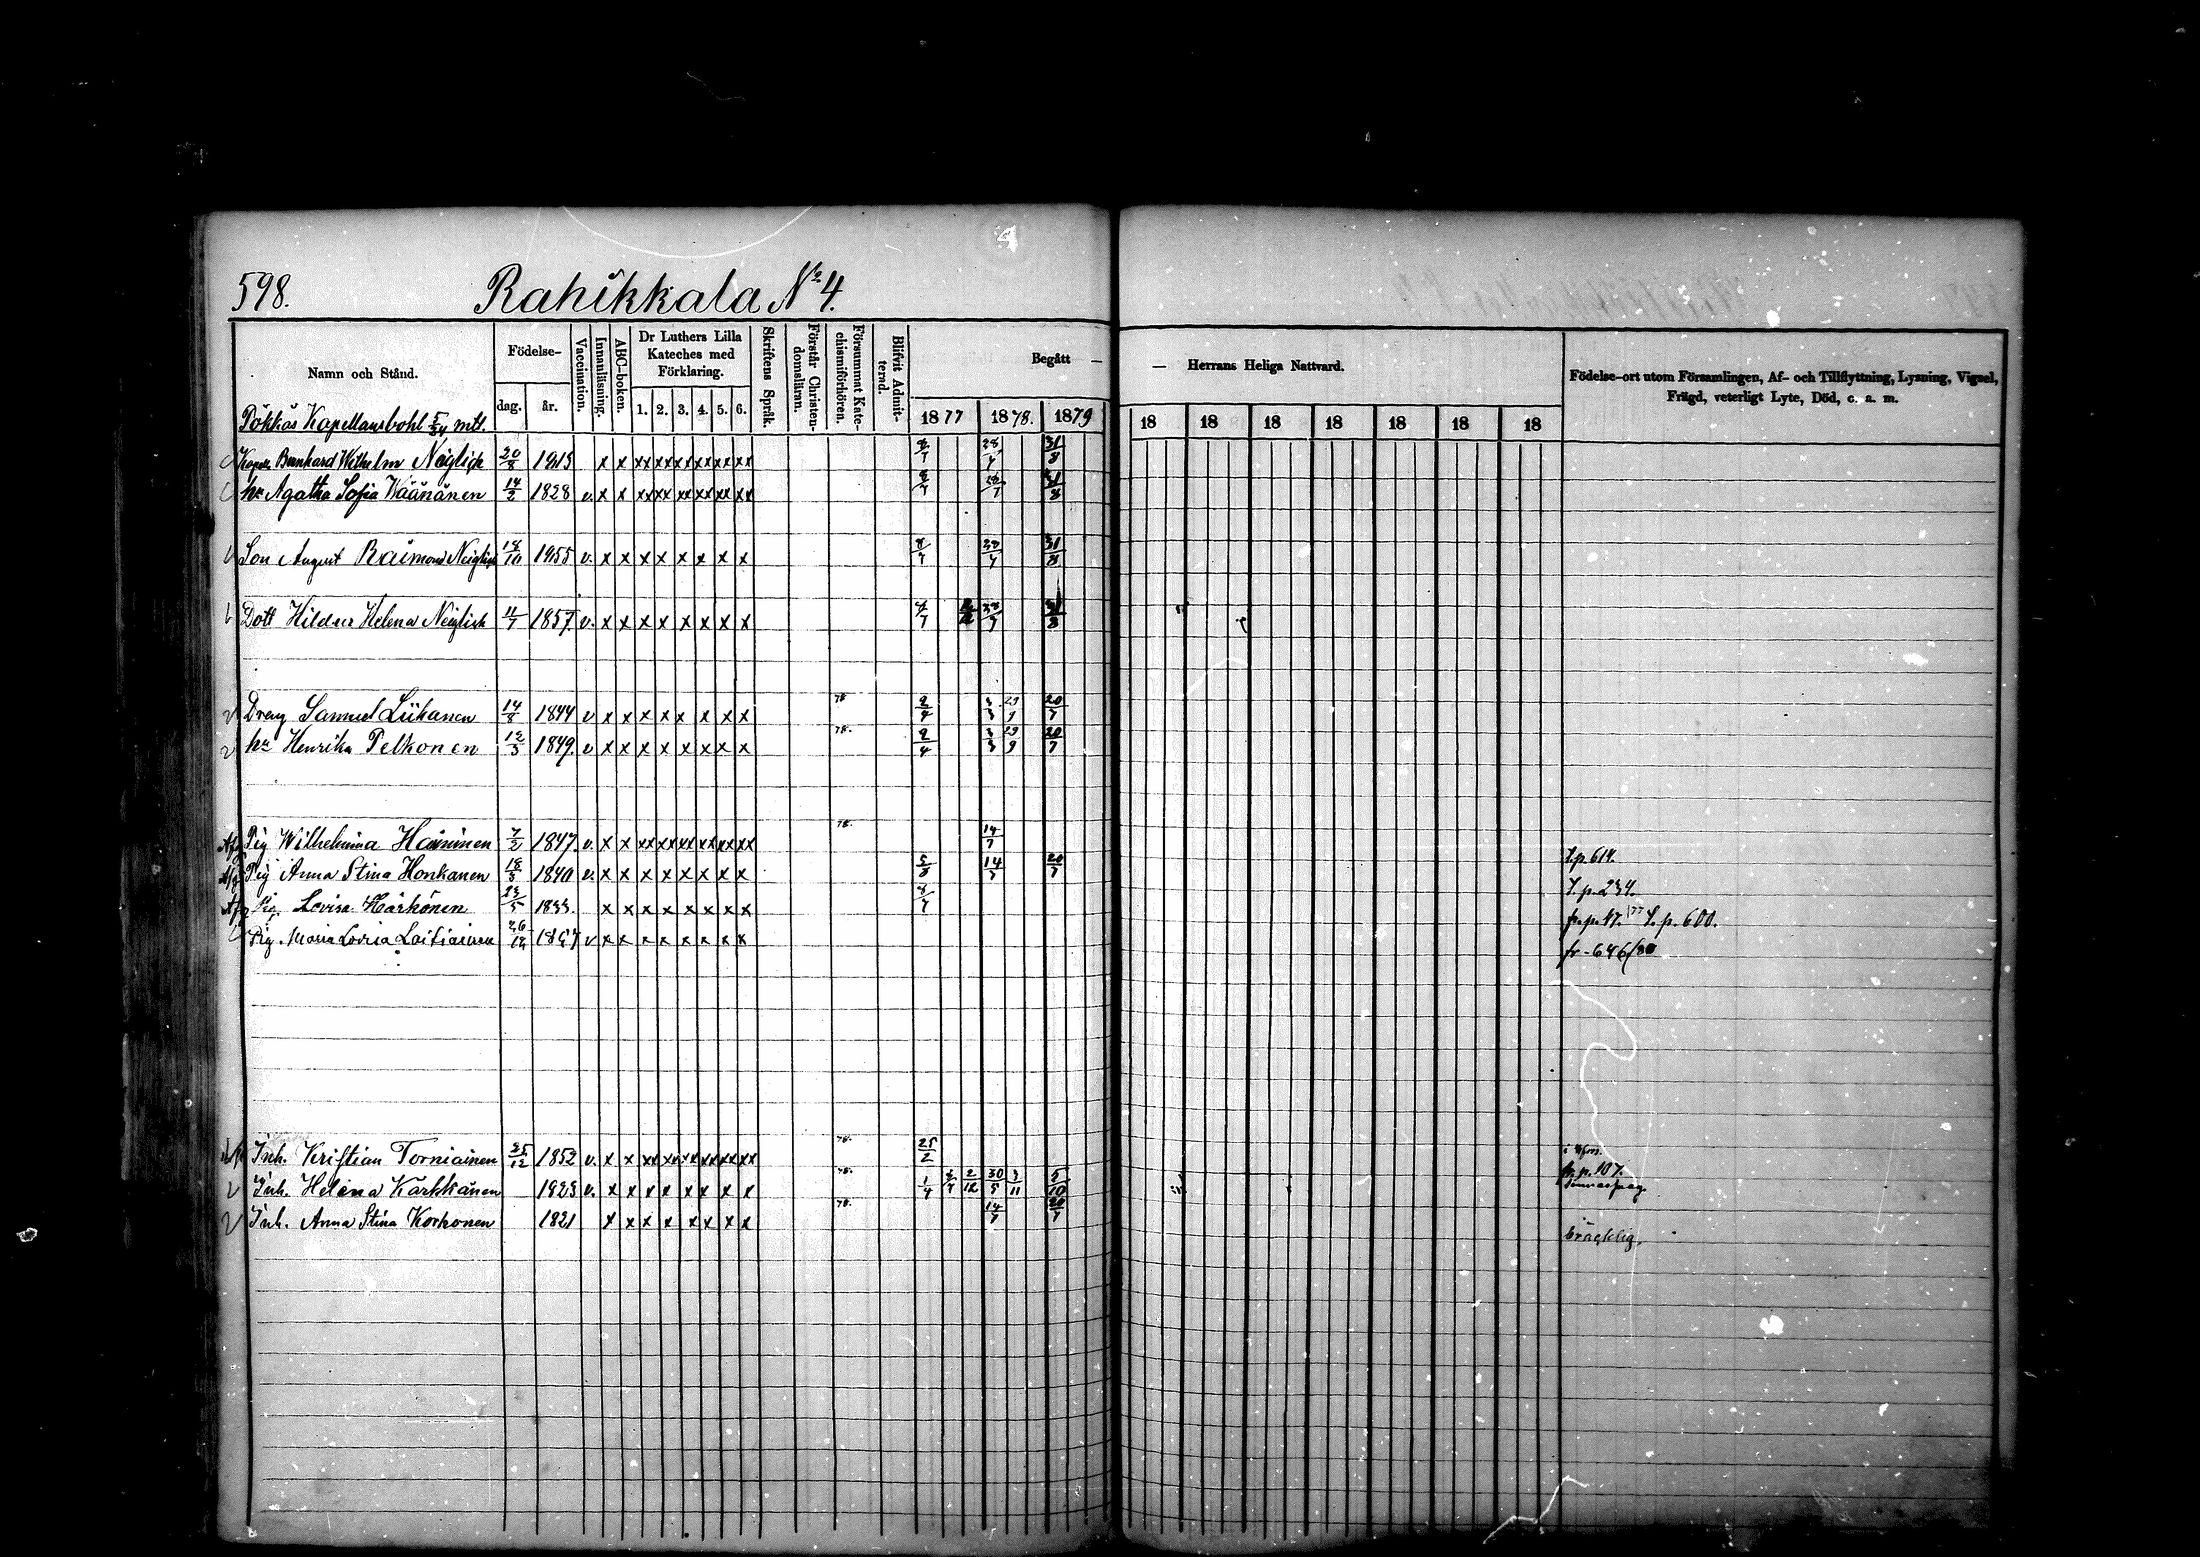 598. Rahikkala No 4.
Namn och Stånd.
Födelse-
dag. år.
Vaccination.
Innanläsning.
ABC-boken.
Dr Luthers Lilla
Kateches med
Förklaring.
1. 2. 3. 4. 5. 6.
Skriftens Språk.
Förstår Christen-
domsläran.
Försummat Kate-
chismiförhören.
Blifvit Admit-
terad.
Begått —
— Herrans Heliga Nattvard.
1877 1878. 1879 18 18 18 18 18 18 18
Födelse-ort utom Församlingen, Af- och Tillflyttning, Lysning, Vigsel,
Frägd, veterligt Lyte, Död, c. a. m.
Pökkäs Kapellansbohl 5/24 mtl.
Bernhard Wilhelm Neiglick 20/8 x x xx xx xx xx xx xx 28/7 31/8
hu Agatha Sofia Wäänänen 14/2 1828 v. x x xx xx xx xx xx xx 28/7 31/8
Son August Raimond Neiglick 18/10 1855 v. x x x x x x x x 8/7 28/7 31/8
Dott Hildur Helena Neiglick 1857. v. x x x x x x x x 8/7 28/7 31/8
Dreng Samuel Liikanen 14/8 1844 v x x x x x x x x 78. 3/3 29/9 20/7
hu Henrika Pelkonen 1849. v x x x x x x x x 78. 3/3 29/9 20/7
Pig Wilhelmina Haininen 7/2 1847. v. x x xx xx xx xx xx xx 78. 14/7 t.p. 614.
Pig Anna Stina Honkanen 18/3 1840 v. x x x x x x x x 14/7 20/7 t.p. 234.
Pig. Lovisa Härkönen 23/5 1833. x x x x x x x x 8/7 fr.p. 47. /77 t.p. 600.
Pig. Maria Lovisa Laitiainen 26/12 v x x x x x x x x fr. 646/80
Inh. Kristian Torniainen 25/12 1852 v. x x xx xx xx xx xx xx 78. 25/2
Inh. Helena Kärkkänen 1823 v. x x x x x x x x 78. 1/4 2/12 30/5 3/11 5/10 fr.p. 107.
Inh. Anna Stina Korhonen 1821 x x x x x x x x 78. 14/7 20/7 bräcklig.